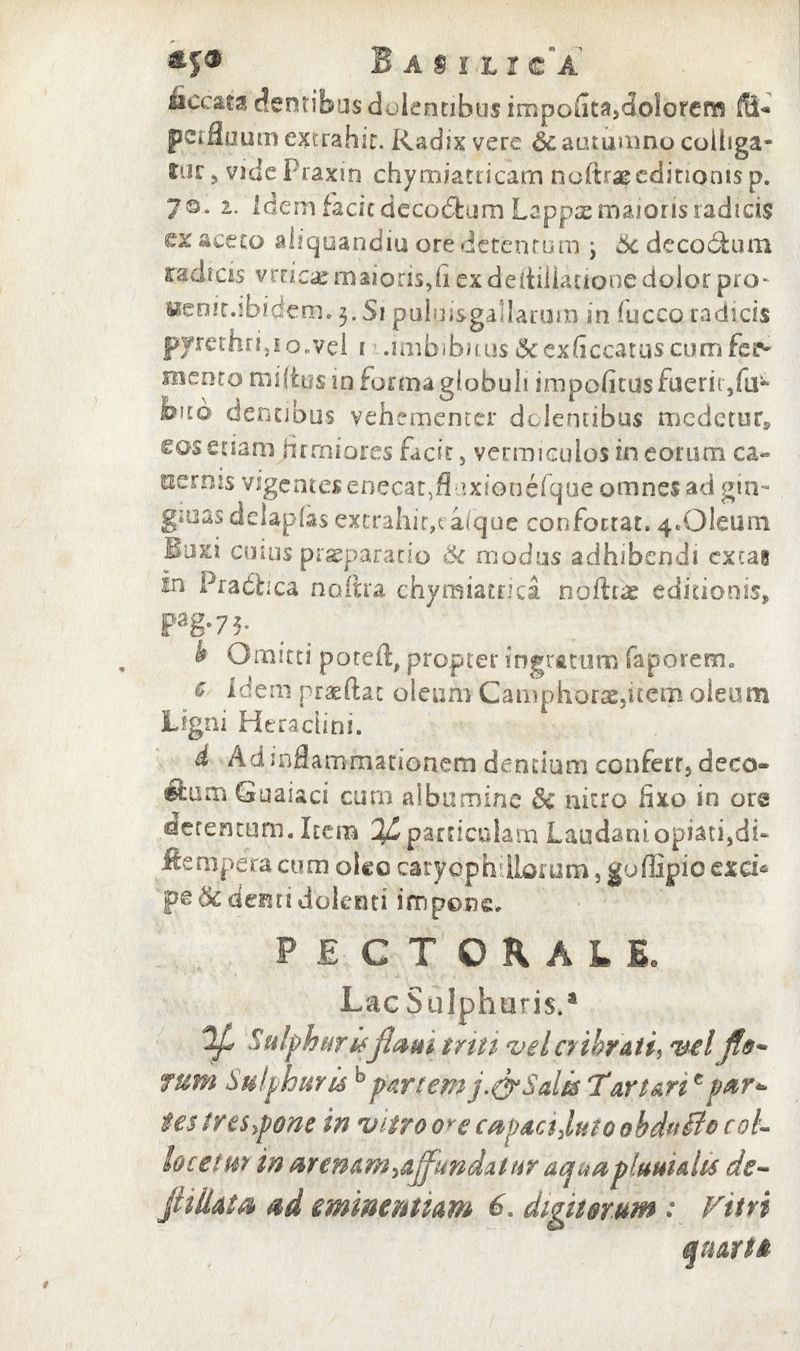 250 BASILICA
ſiccata dentibus dolentibus impoſita, dolorem ſu-
perfluum extrahit. Radix vere & autumno colliga-
tur, vide Praxin chymiatricam noſtræ editionis p.
70. 2. Idem facit decoctum Lappæ maioris radicis
ex aceto aliquandiu ore detentum; & decoctum
radicis vrticæ maioris, ſi ex deſtillatione dolor pro-
uenit. ibidem. 3. Si puluis gallarum in ſucco radicis
pyrethri, 10. vel imbibitus & exſiccatus cum fer-
mento miſtus in forma globuli impoſitus fuerit, ſu-
bitò dentibus vehementer dolentibus medetur,
eos etiam firmiores facit, vermiculos in eorum ca-
uernis vigentes enecat, fluxionéſque omnes ad gin-
giuas delapſas extrahit, eáſque confortat. 4. Oleum
Buxi cuius præparatio & modus adhibendi extat
in Practica noſtra chymiatricâ noſtræ editionis,
pag. 73.
b Omitti poteſt, propter ingratum ſaporem.
c Idem præſtat oleum Camphoræ, item oleum
Ligni Heraclini.
d Ad inflammationem dentium confert, deco-
ctum Guaiaci cum albumine & nitro fixo in ore
detentum. Item ♃ particulam Laudani opiati, di-
ſtempera cum oleo caryophillorum, goſſipio exci-
pe & denti dolenti impone.
PECTORALE.
Lac Sulphuris.ª
♃ Sulphuris flaui triti vel cribrati, vel flo-
rum Sulphuris ᵇ partem j. & Salis Tartari ᶜ par-
tes tres, pone in vitro ore capaci, luto obducto col-
locetur in arenam, affundatur aqua pluuialis de-
ſtillata ad eminentiam 6. digitorum: Vitri
quarta